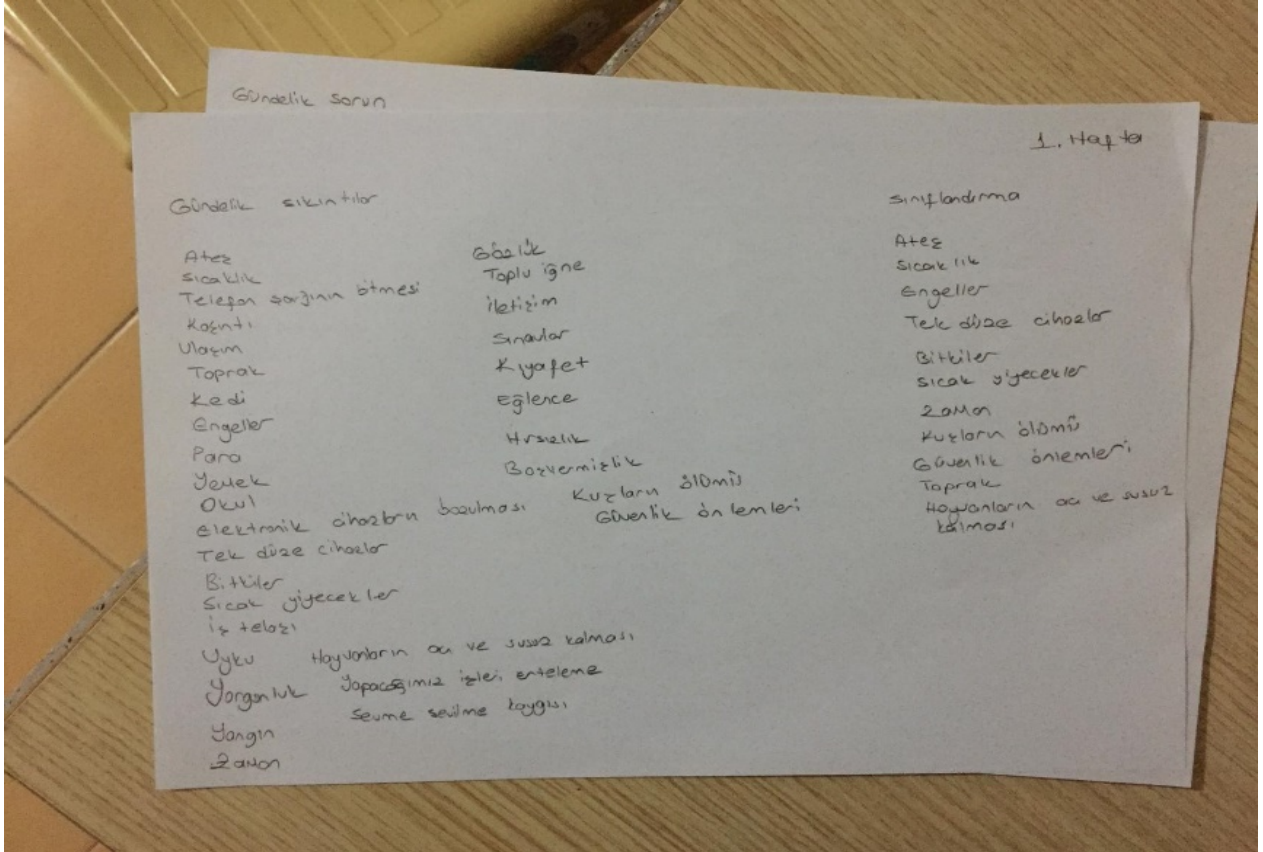 Gündelik sorun
1. Hafta
Gündelik sıkıntılar
Ateş
Sıcaklık
Telefon şarjının bitmesi
Kaşıntı
Ulaşım
Toprak
Kedi
Engeller
Para
Yemek
Okul
Elektronik cihazların bozulması
Tek düze cihazlar
Bitkiler
Sıcak yiyecekler
İş telaşı
Uyku
Yorgunluk
Yangın
Zaman
Gözlük
Toplu iğne
İletişim
Sınavlar
Kıyafet
Eğlence
Hırsızlık
Boşvermişlik
Kuşların ölümü
Güvenlik önlemleri
Hayvanların aç ve susuz kalması
Yapacağımız işleri erteleme
Sevme sevilme kaygısı
Sınıflandırma
Ateş
Sıcaklık
Engeller
Tek düze cihazlar
Bitkiler
Sıcak yiyecekler
Zaman
Kuşların ölümü
Güvenlik önlemleri
Toprak
Hayvanların aç ve susuz
kalması